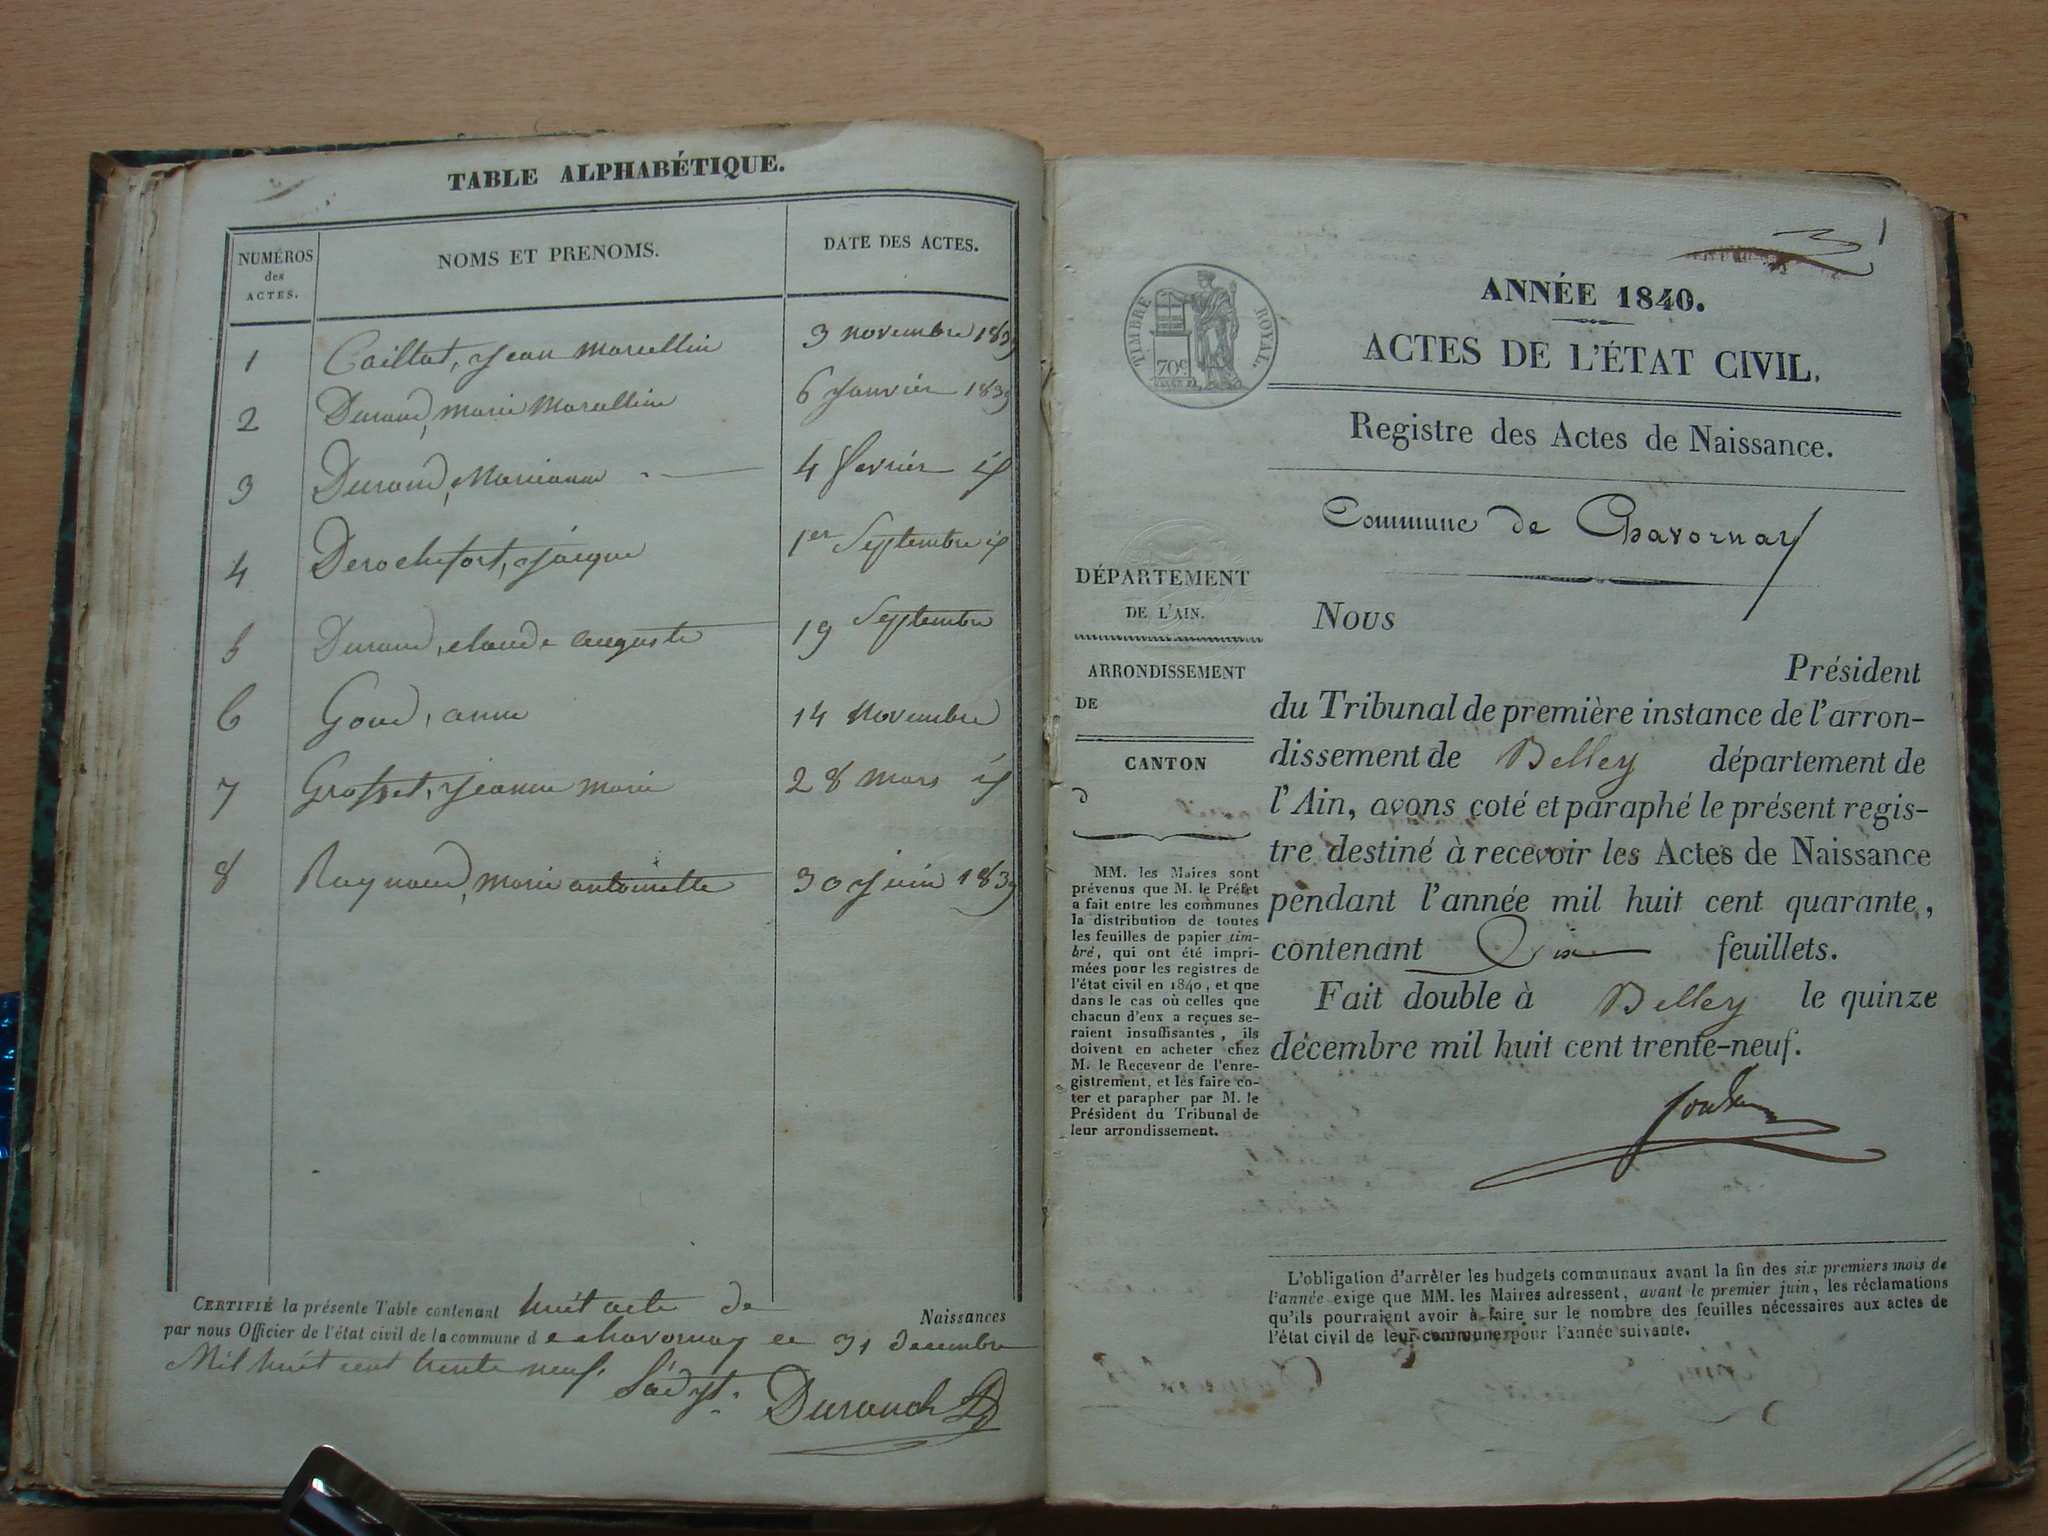 TABLE ALPHABÉTIQUE.
NUMÉROS des ACTES.
NOMS ET PRENOMS.
DATE DES ACTES.
1 Caillat, jean marcellin 3 novembre 1839
2 Durand, marie Marcelline 6 janvier 1839
3 Durand, Marianne 4 fevrier id
4 Derochefort, jacque 1er Septembre id
5 Durand, claude auguste 19 Septembre
6 Goud, anne 14 Novembre
7 Grosset, jeanne marie 28 mars id
8 Raynaud, marie antoinette 30 juin 1839
CERTIFIÉ la présente Table contenant huit acte de Naissances
par nous Officier de l'état civil de la commune de chavornay le 31 decembre
Mil huit cent trente neuf.
Durand
1
ANNÉE 1840.
TIMBRE ROYAL
70c
ACTES DE L'ÉTAT CIVIL.
Registre des Actes de Naissance.
Commune de Chavornay
DÉPARTEMENT
DE L'AIN.
ARRONDISSEMENT
DE
CANTON
D
MM. les Maires sont
prévenus que M. le Préfet
a fait entre les communes
la distribution de toutes
les feuilles de papier tim-
bré, qui ont été impri-
mées pour les registres de
l'état civil en 1840, et que
dans le cas où celles que
chacun d'eux a reçues se-
raient insuffisantes, ils
doivent en acheter chez
M. le Receveur de l'enre-
gistrement, et les faire co-
ter et parapher par M. le
Président du Tribunal de
leur arrondissement.
NOUS
Président
du Tribunal de première instance de l'arron-
dissement de Belley département de
l'Ain, avons coté et paraphé le présent regis-
tre destiné à recevoir les Actes de Naissance
pendant l'année mil huit cent quarante,
contenant Dix feuillets.
Fait double à Belley le quinze
décembre mil huit cent trente-neuf.
L'obligation d'arrêter les budgets communaux avant la fin des six premiers mois de
l'année exige que MM. les Maires adressent, avant le premier juin, les réclamations
qu'ils pourraient avoir à faire sur le nombre des feuilles nécessaires aux actes de
l'état civil de leur commune pour l'année suivante.